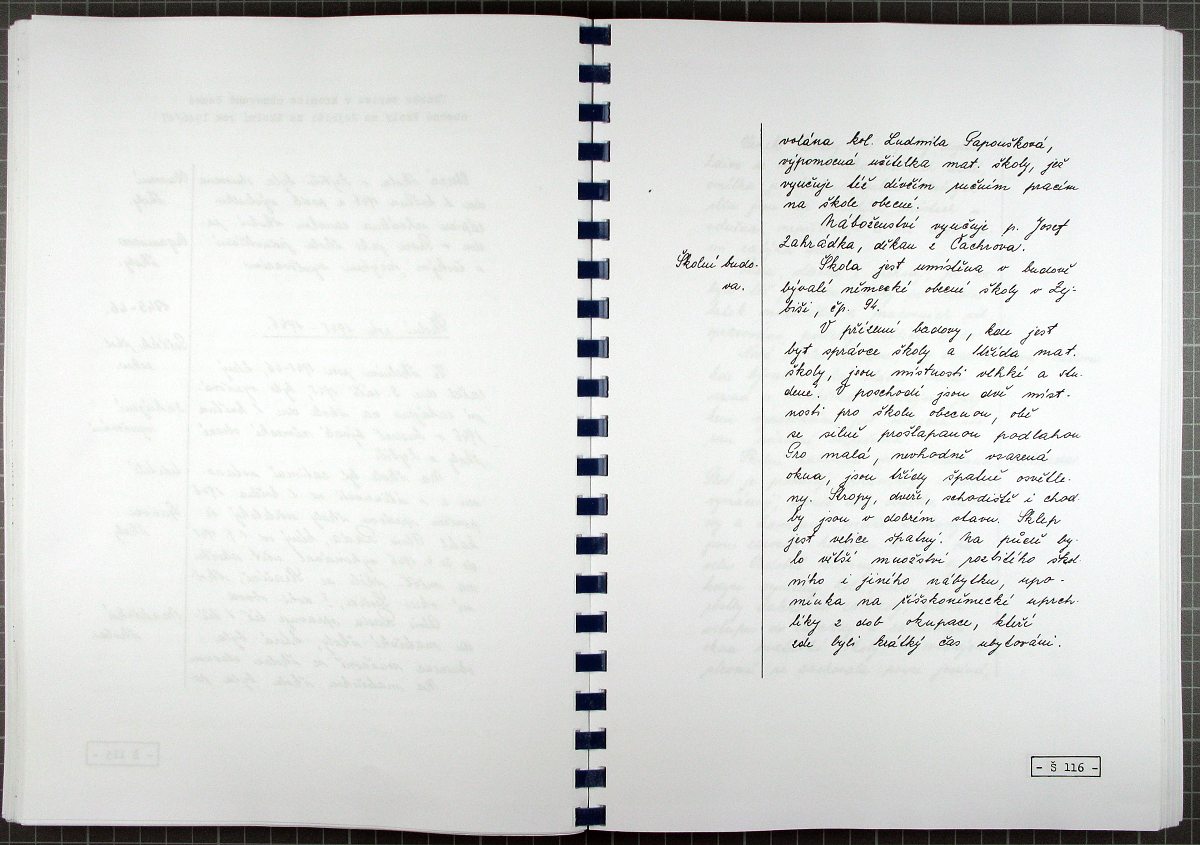 volána kol. Ludmila Papoušková,
výpomocná učitelka mat. školy, jež
vyučuje též dívčím ručním pracím
na škole obecné.
Náboženství vyučuje p. Josef
Zahrádka, děkan z Čachrova.
Školní budo-
va.
Škola jest umístěna v budově
bývalé německé obecné školy v Zej-
biši, čp. 94.
V přízemí budovy, kde jest
byt správce školy a třída mat.
školy, jsou místnosti vlhké a stu-
dené. V poschodí jsou dvě míst-
nosti pro školu obecnou, obě
se silně prošlapanou podlahou
Pro malá, nevhodně vsazená
okna, jsou třídy špatně osvětle-
ny. Stropy, dveře, schodiště i chod-
by jsou v dobrém stavu. Sklep
jest velice špatný. Na půdě by-
lo větší množství rozbitého škol-
ního i jiného nábytku, upo-
mínka na říšskoněmecké uprch-
líky z dob okupace, kteří
zde byli krátký čas ubytováni.
- Š 116 -